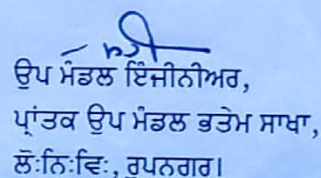 ਉਪ ਮੰਡਲ ਇੰਜੀਨੀਅਰ,
ਪ੍ਰਾਂਤਕ ਉਪ ਮੰਡਲ ਭਤੇਮ ਸਾਖਾ,
ਲੋ:ਨਿ:ਵਿ:, ਰੂਪਨਗਰ।